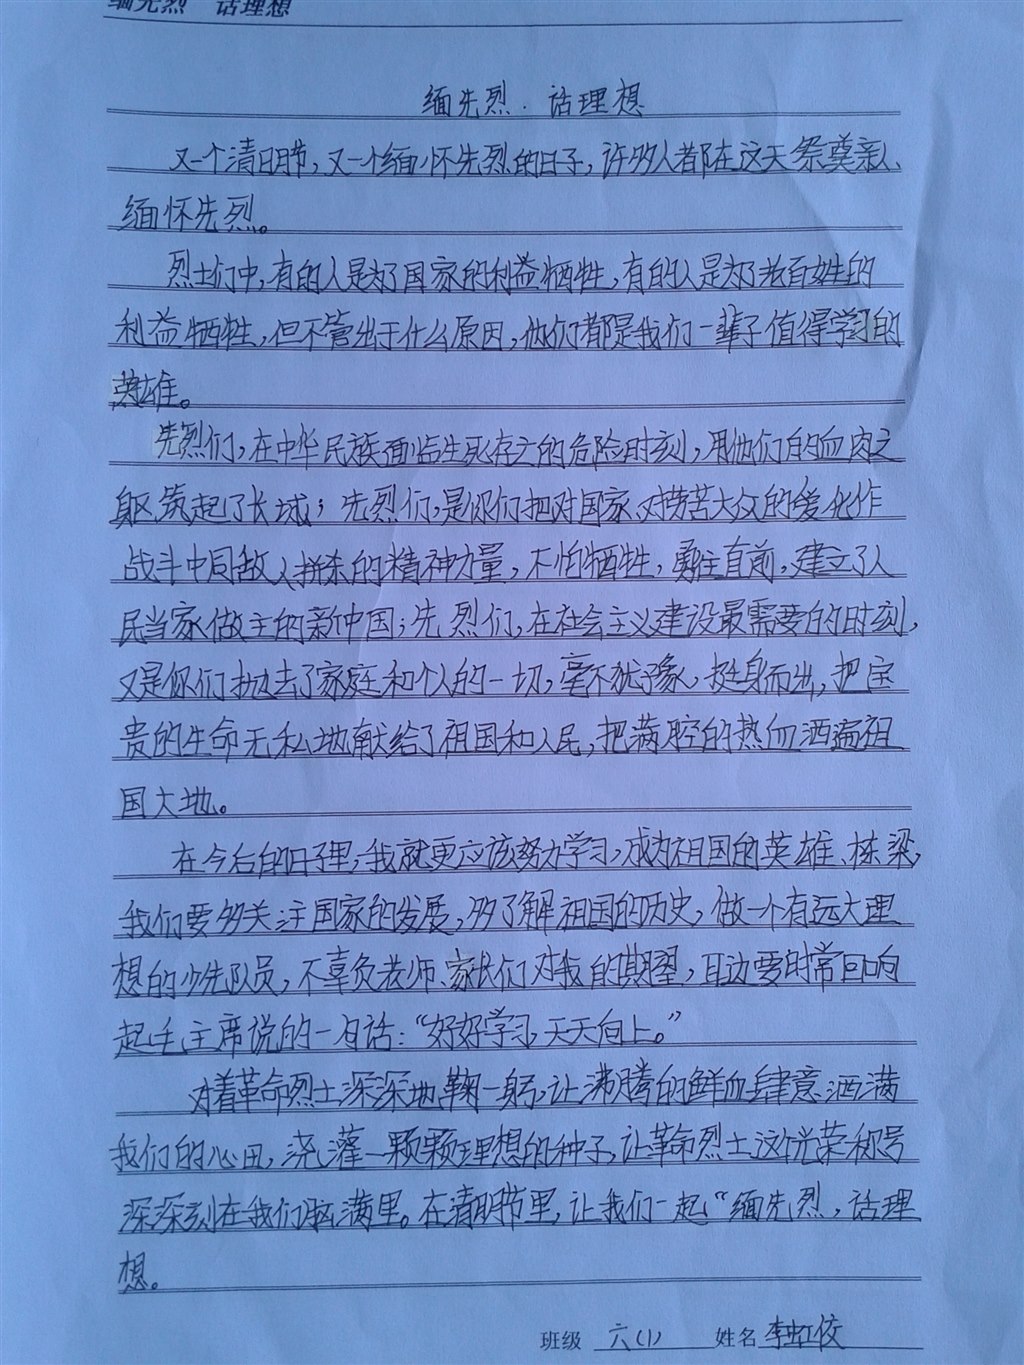 缅先烈 话理想
缅先烈·话理想
又一个清明节，又一个缅怀先烈的日子，许多人都在这天祭奠亲人、
缅怀先烈。
烈士们中，有的人是为了国家的利益牺牲，有的人是为了老百姓的
利益牺牲，但不管出于什么原因，他们都是我们一辈子值得学习的
英雄。
先烈们，在中华民族面临生死存亡的危险时刻，用他们的血肉之
躯，筑起了长城；先烈们，是你们把对国家、对劳苦大众的爱化作
战斗中同敌人拼杀的精神力量，不怕牺牲，勇往直前，建立了人
民当家做主的新中国；先烈们，在社会主义建设最需要的时刻，
又是你们抛去了家庭和个人的一切，毫不犹豫，挺身而出，把宝
贵的生命无私地献给了祖国和人民，把满腔的热血洒遍祖
国大地。
在今后的日子里，我就更应该努力学习，成为祖国的英雄、栋梁，
我们要多关注国家的发展，多了解祖国的历史，做一个有远大理
想的少先队员，不辜负老师、家长们对我的期望，耳边要时常回响
起毛主席说的一句话：“好好学习，天天向上。”
对着革命烈士深深地鞠一躬，让沸腾的鲜血肆意洒满
我们的心田，浇灌一颗颗理想的种子，让革命烈士这个光荣称号
深深刻在我们脑满里。在清明节里，让我们一起“缅先烈，话理
想。
班级 六(1) 姓名 李虹佼